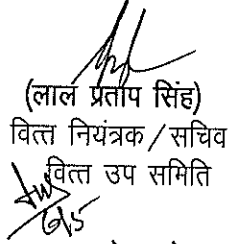 (लाल प्रताप सिंह)
वित्त नियंत्रक/सचिव
वित्त उप समिति
6/5